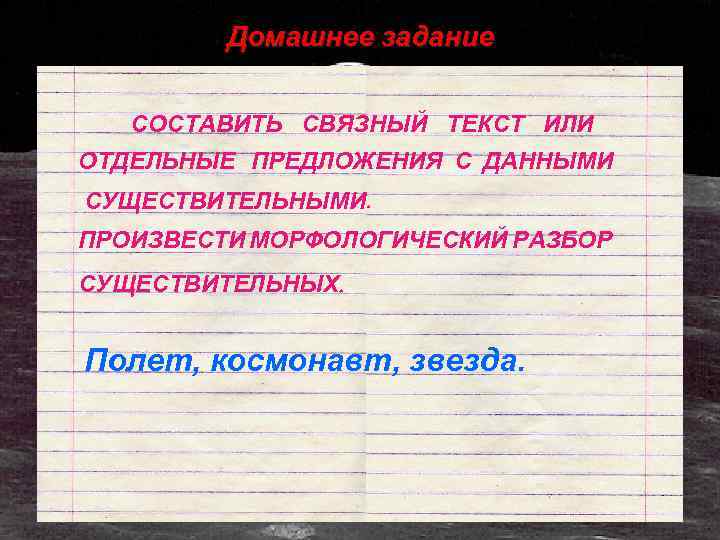 Домашнее задание
СОСТАВИТЬ СВЯЗНЫЙ ТЕКСТ ИЛИ
ОТДЕЛЬНЫЕ ПРЕДЛОЖЕНИЯ С ДАННЫМИ
СУЩЕСТВИТЕЛЬНЫМИ.
ПРОИЗВЕСТИ МОРФОЛОГИЧЕСКИЙ РАЗБОР
СУЩЕСТВИТЕЛЬНЫХ.
Полет, космонавт, звезда.